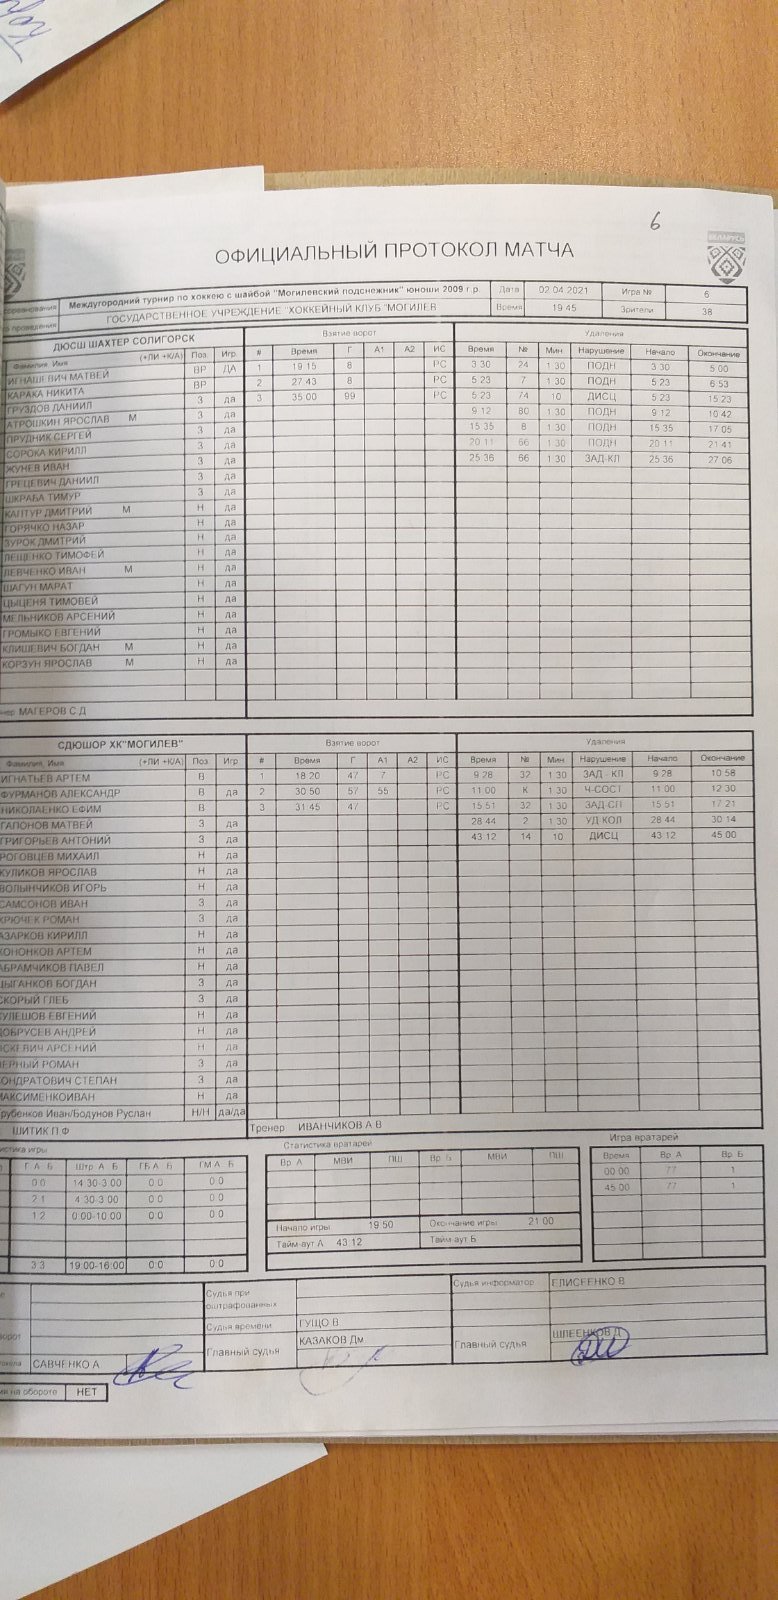 6
ОФИЦИАЛЬНЫЙ ПРОТОКОЛ МАТЧА
БЕЛАРУСЬ
соревнования Междугородний турнир по хоккею с шайбой "Могилевский подснежник" юноши 2009 г.р. Дата 02.04.2021 Игра № 6
проведения ГОСУДАРСТВЕННОЕ УЧРЕЖДЕНИЕ "ХОККЕЙНЫЙ КЛУБ "МОГИЛЕВ Время 19 45 Зрители 38
ДЮСШ ШАХТЕР СОЛИГОРСК Взятие ворот Удаления
Фамилия, Имя (+ЛИ +К/А) Поз Игр # Время Г А1 А2 ИС Время № Мин Нарушение Начало Окончание
ИГНАШЕВИЧ МАТВЕЙ ВР ДА 1 19 15 8 РС 3 30 24 1 30 ПОДН 3 30 5 00
КАРАКА НИКИТА ВР 2 27 43 8 РС 5 23 7 1 30 ПОДН 5 23 6 53
ГРУЗДОВ ДАНИИЛ З да 3 35 00 99 РС 5 23 74 10 ДИСЦ 5 23 15 23
АТРОШКИН ЯРОСЛАВ М З да 9 12 80 1 30 ПОДН 9 12 10 42
ПРУДНИК СЕРГЕЙ З да 15 35 8 1 30 ПОДН 15 35 17 05
СОРОКА КИРИЛЛ З да 20 11 66 1 30 ПОДН 20 11 21 41
ЖУНЕВ ИВАН З да 25 36 66 1 30 ЗАД-КЛ 25 36 27 06
ГРЕЦЕВИЧ ДАНИИЛ З да
ШКРАБА ТИМУР З да
КАПТУР ДМИТРИЙ М Н да
ГОРЯЧКО НАЗАР Н да
ЗУРОК ДМИТРИЙ Н да
ЛЕЩЕНКО ТИМОФЕЙ Н да
ЛЕВЧЕНКО ИВАН М Н да
ШАГУН МАРАТ Н да
ЦЫЦЕНЯ ТИМОВЕЙ Н да
МЕЛЬНИКОВ АРСЕНИЙ Н да
ГРОМЫКО ЕВГЕНИЙ Н да
КЛИШЕВИЧ БОГДАН М Н да
КОРЗУН ЯРОСЛАВ М Н да
МАГЕРОВ С.Д
СДЮШОР ХК"МОГИЛЕВ" Взятие ворот Удаления
Фамилия, Имя (+ЛИ +К/А) Поз Игр # Время Г А1 А2 ИС Время № Мин Нарушение Начало Окончание
ИГНАТЬЕВ АРТЕМ В 1 18 20 47 7 РС 9 28 32 1 30 ЗАД - КЛ 9 28 10 58
ФУРМАНОВ АЛЕКСАНДР В да 2 30 50 57 55 РС 11 00 К 1 30 Ч-СОСТ 11 00 12 30
НИКОЛАЕНКО ЕФИМ В 3 31 45 47 РС 15 51 32 1 30 ЗАД-СП 15 51 17 21
ГАПОНОВ МАТВЕЙ З да 28 44 2 1 30 УД-КОЛ 28 44 30 14
ГРИГОРЬЕВ АНТОНИЙ З да 43 12 14 10 ДИСЦ 43 12 45 00
РОГОВЦЕВ МИХАИЛ Н да
КУЛИКОВ ЯРОСЛАВ Н да
ВОЛЫНЧИКОВ ИГОРЬ Н да
САМСОНОВ ИВАН З да
КРЮЧЕК РОМАН З да
АЗАРКОВ КИРИЛЛ Н да
КОНОНКОВ АРТЕМ Н да
АБРАМЧИКОВ ПАВЕЛ Н да
ЦЫГАНКОВ БОГДАН З да
СКОРЫЙ ГЛЕБ З да
КУЛЕШОВ ЕВГЕНИЙ Н да
ДОБРУСЕВ АНДРЕЙ Н да
АРСЕНИЙ Н да
ЧЕРНЫЙ РОМАН З да
КОНДРАТОВИЧ СТЕПАН З да
МАКСИМЕНКОИВАН Н да
Иван/Бодунов Руслан Н/Н да/да
ШИТИК П Ф Тренер ИВАНЧИКОВ А В
Статистика вратарей Игра вратарей
Г А Б Штр А Б ГБ А Б ГМ А Б Вр А МВИ ПШ Вр Б МВИ ПШ Время Вр А Вр Б
0 0 14 30-3 00 0 0 0 0 00 00 77 1
2 1 4 30-3 00 0 0 0 0 45 00 77 1
1 2 0 00-10 00 0 0 0 0
Начало игры 19 50 Окончание игры 21 00
3 3 19 00-16 00 0 0 0 0 Тайм-аут А 43 12 Тайм-аут Б
Судья при оштрафованных Судья информатор ЕЛИСЕЕНКО В
Судья времени ГУЩО В
САВЧЕНКО А Главный судья КАЗАКОВ Дм Главный судья ШЛЕЕНКОВ Д
на обороте НЕТ